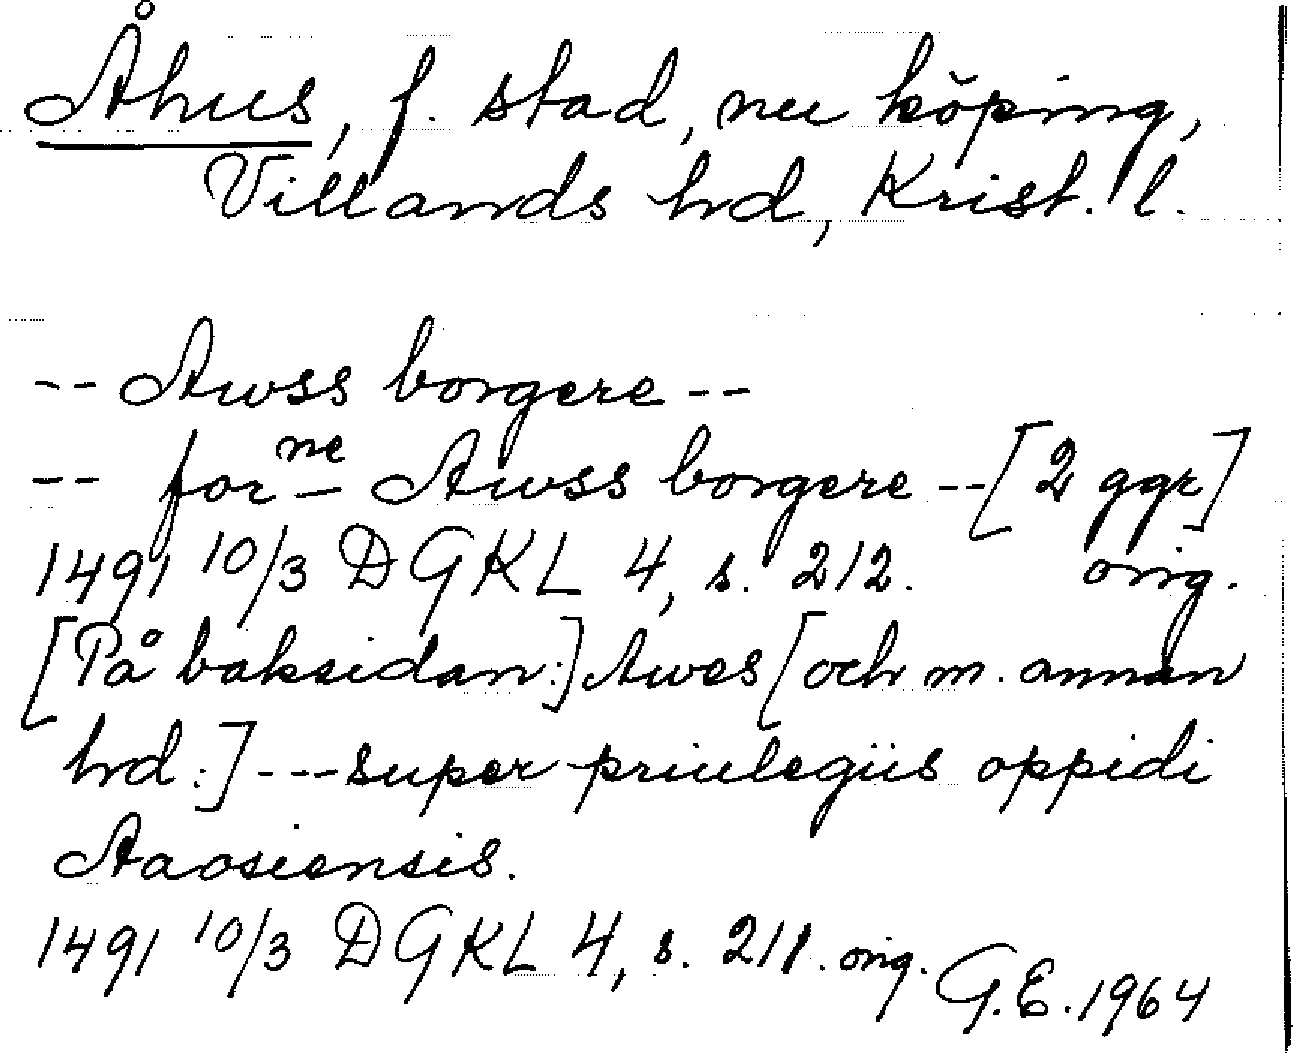 Åhus, f. stad, nu köping,
Villands hd, Krist. l.
-- Awss borgere --
-- forne Awss borgere --[2 ggr]
1491 10/3 DGKL 4, s. 212. orig.
[På baksidan:] Awes [och m. annan
hd:] --- super priulegiis oppidi
Aaosiensis.
1491 10/3 DGKL 4, s. 211. orig.
G.E. 1964